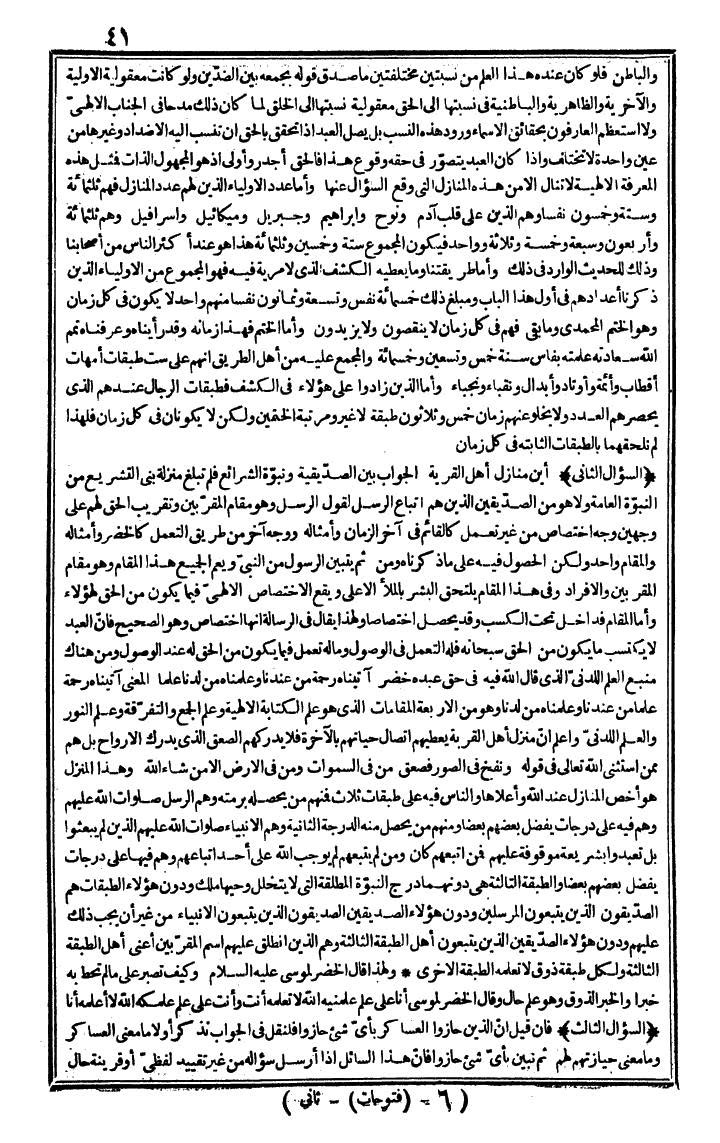 ٤١
والباطن فلو كان عنده هذا العلم من نسبتين مختلفتين ما صدق قوله بجمعه بين الضدّين ولو كانت معقولية الاولية
والآخرية والظاهرية والباطنية فى نسبتها الى الحق معقولية نسبتها الى الخلق لما كان ذلك مدحا فى الجناب الالهىّ
ولا استعظم العارفون بحقائق الاسماء ورود هذه النسب بل يصل العبد اذا تحقق بالحق ان تنسب اليه الاضداد وغيرها من
عين واحدة لا تختلف واذا كان العبد يتصوّر فى حقه وقوع هذا فالحق أجدر وأولى اذ هو المجهول الذات فمثل هذه
المعرفة الالهية لا تنال الا من هذه المنازل التى وقع السؤال عنها وأما عدد الاولياء الذين لهم عدد المنازل فهم ثلثمائة
وستة وخمسون نفسا وهم الذين على قلب آدم ونوح وابراهيم وجبريل وميكائيل واسرافيل وهم ثلثمائة
وأربعون وسبعة وخمسة وثلاثة وواحد فيكون المجموع ستة وخمسين وثلثمائة هذا هو عند أكثر الناس من أصحابنا
وذلك للحديث الوارد فى ذلك وأما طريقتنا وما يعطيه الكشف الذى لا مرية فيه فهو المجموع من الاولياء الذين
ذكرنا أعدادهم فى أول هذا الباب ومبلغ ذلك خمسمائة نفس وتسعة وثمانون نفسا منهم واحد لا يكون فى كل زمان
وهو الختم المحمدى وما بقى فهم فى كل زمان لا ينقصون ولا يزيدون وأما الختم فهذا زمانه وقد رأيناه وعرفناه تمم
الله سعادته علمته بفاس سنة خمس وتسعين وخمسمائة والمجمع عليه من أهل الطريق انهم على ست طبقات أمهات
أقطاب وأئمة وأوتاد وأبدال ونقباء ونجباء وأما الذين زادوا على هؤلاء فى الكشف فطبقات الرجال عندهم الذى
يحصرهم العدد ولا يخلو عنهم زمان خمس وثلاثون طبقة لا غير ومرتبة الختمين ولكن لا يكونان فى كل زمان فلهذا
لم نلحقهما بالطبقات الثابته فى كل زمان
﴿السؤال الثانى﴾ أين منازل أهل القربة الجواب بين الصدّيقية ونبوّة الشرائع فلم تبلغ منزلة نبى التشريع من
النبوّة العامة ولا هو من الصدّيقين الذين هم اتباع الرسل لقول الرسل وهو مقام المقرّبين وتقريب الحق لهم على
وجهين وجه اختصاص من غير تعمل كالقائم فى آخر الزمان وأمثاله ووجه آخر من طريق التعمل كالخضر وأمثاله
والمقام واحد ولكن الحصول فيه على ما ذكرناه ومن ثم يتبين الرسول من النبىّ ويعم الجميع هذا المقام وهو مقام
المقربين والافراد وفى هذا المقام يلتحق البشر بالملأ الاعلى ويقع الاختصاص الالهىّ فيما يكون من الحق لهؤلاء
وأما المقام فداخل تحت الكسب وقد يحصل اختصاصا ولهذا يقال فى الرسالة انها اختصاص وهو الصحيح فانّ العبد
لا يكتسب ما يكون من الحق سبحانه فله التعمل فى الوصول وما له تعمل فيما يكون من الحق له عند الوصول ومن هناك
منبع العلم اللدنىّ الذى قال الله فيه فى حق عبده خضر آتيناه رحمة من عندنا وعلمناه من لدنا علما المعنى آتيناه رحمة
علما من عندنا وعلمناه من لدنا وهو من الاربعة المقامات الذى هو علم الكتابة الالهية وعلم الجمع والتفرقة وعلم النور
والعلم اللدنىّ واعلم انّ منزل أهل القربة يعطيهم اتصال حياتهم بالآخرة فلا يدركهم الصعق الذى يدرك الارواح بل هم
ممن استثنى الله تعالى فى قوله ونفخ فى الصور فصعق من فى السموات ومن فى الارض الا من شاء الله وهذا المنزل
هو أخص المنازل عند الله وأعلاها والناس فيه على طبقات ثلاث فمنهم من يحصله برمته وهم الرسل صلوات الله عليهم
وهم فيه على درجات يفضل بعضهم بعضا ومنهم من يحصل منه الدرجة الثانية وهم الانبياء صلوات الله عليهم الذين لم يبعثوا
بل تعبدوا بشريعة موقوفة عليهم فمن اتبعهم كان ومن لم يتبعهم لم يوجب الله على أحد اتباعهم وهم فيها على درجات
يفضل بعضهم بعضا والطبقة الثالثة هى دونهما درج النبوّة المطلقة التى لا يتخلل وحيها ملك ودون هؤلاء الطبقات هم
الصدّيقون الذين يتبعون المرسلين ودون هؤلاء الصديقين الصديقون الذين يتبعون الانبياء من غير أن يجب ذلك
عليهم ودون هؤلاء الصدّيقين الذين يتبعون أهل الطبقة الثالثة وهم الذين انطلق عليهم اسم المقرّبين أعنى أهل الطبقة
الثالثة ولكل طبقة ذوق لا تعلمه الطبقة الاخرى * ولهذا قال الخضر لموسى عليه السلام وكيف تصبر على ما لم تحط به
خبرا والخبر الذوق وهو علم حال وقال الخضر لموسى أنا على علم علمنيه الله لا تعلمه أنت وأنت على علم علمكه الله لا أعلمه أنا
﴿السؤال الثالث﴾ فان قيل انّ الذين حازوا العساكر بأىّ شئ حازوا فلنقل فى الجواب نذكر أولا ما معنى العساكر
وما معنى حيازتهم لهم ثم نبين بأىّ شئ حازوا فانّ هذا السائل اذا أرسل سؤاله من غير تقييد لفظىّ أو قرينة حال
( ٦ - (فتوحات) - ثانى )